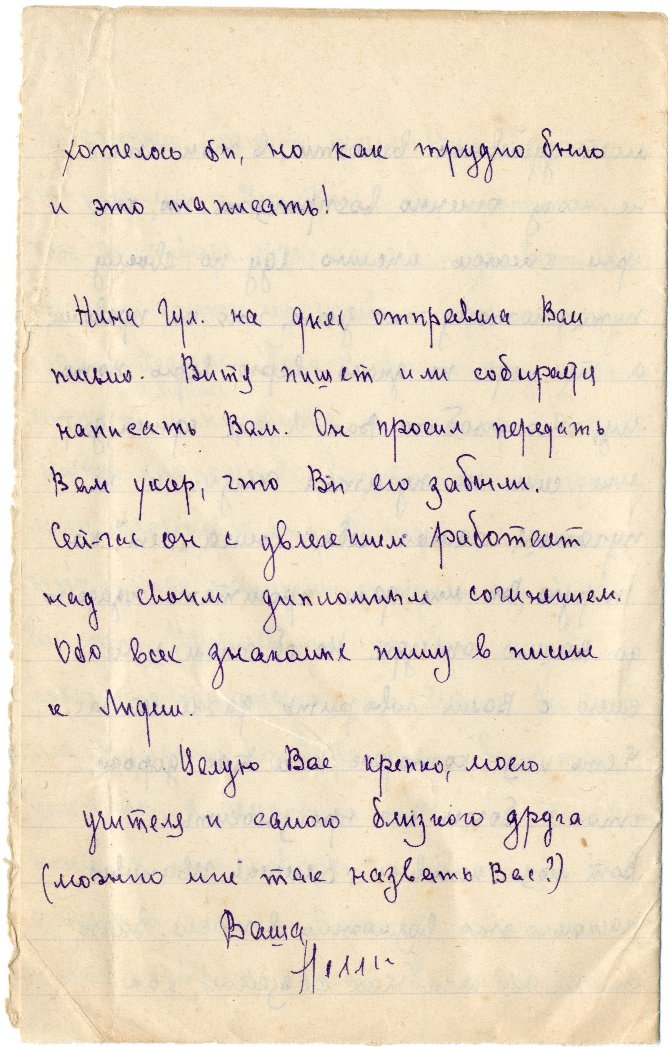 хотелось бы, но как трудно было
и это написать!
Нина Гул. на днях отправила Вам
письмо. Виту пишет или собирался
написать Вам. Он просил передать
Вам укор, что Вы его забыли.
Сейчас он с увлечением работает
над своим дипломным сочинением.
Обо всех знакомых пишу в письме
к Лидии.
Целую Вас крепко, моего
учителя и самого близкого друга
(можно мне так назвать Вас?)
Ваша